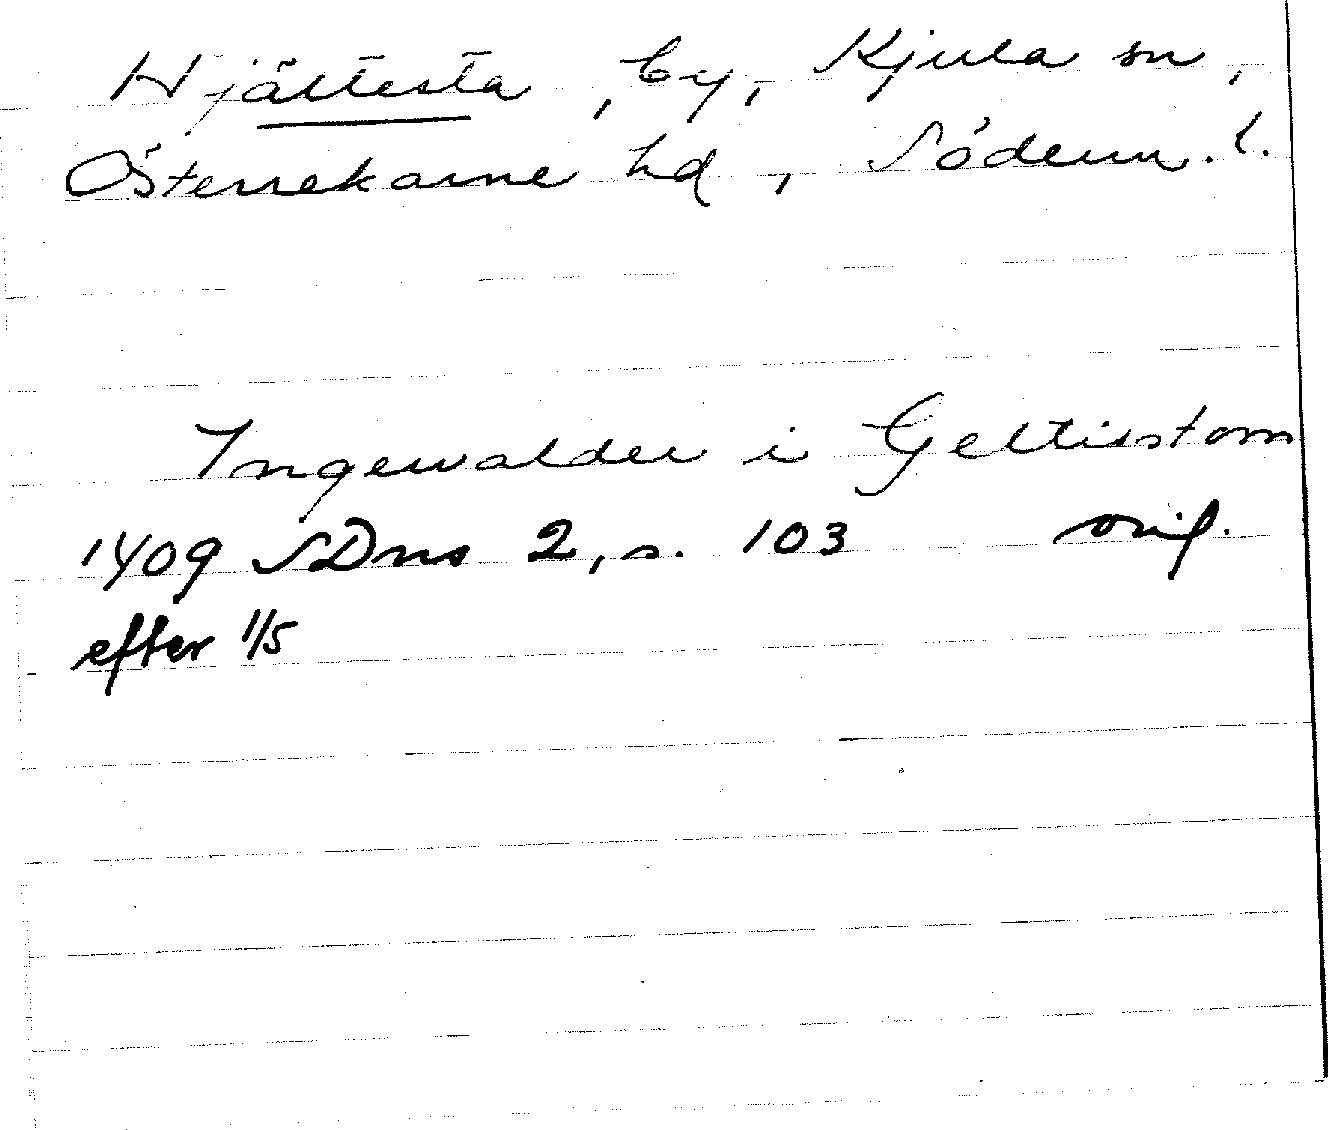 Hjältesta, by, Kjula sn,
Österrekarne hd, Söderm. l.
Ingewalder i Geltisstom
1409 SDns 2, s. 103 orig.
efter 1/5